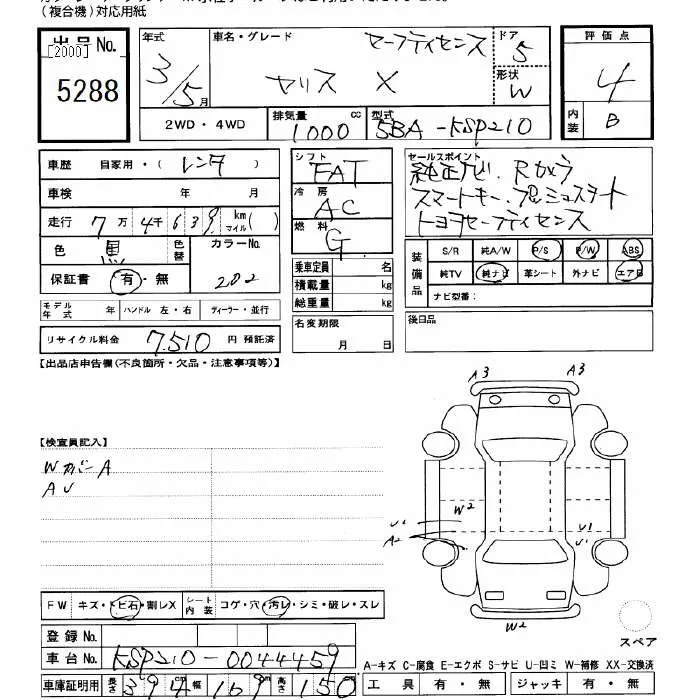 (複合機)対応用紙
出品No.
[2000]
5288
年式
3/5月
車名・グレード
セーフティセンス
ヤリス X
ドア
5
形状
W
評価点
4
内装
B
2WD・4WD
排気量
1000 cc
型式
5BA-KSP210
車歴 自家用・(レンタ)
車検 年 月
走行 7万4千639 km マイル( )
色 黒 色替 カラーNo.
202
保証書 有・無
モデル年式 年 ハンドル 左・右 ディーラー・並行
リサイクル料金 7,510 円 預託済
シフト
FAT
冷房
AC
燃料
G
乗車定員 名
積載量 kg
総重量 kg
名変期限
月 日
セールスポイント
純正ナビ、Rカメラ
スマートキー、プッシュスタート
トヨタセーフティセンス
装備品
S/R 純A/W P/S P/W ABS
純TV 純ナビ 革シート 外ナビ エアB
ナビ型番:
後日品
【出品店申告欄(不良箇所・欠品・注意事項等)】
A3 A3
【検査員記入】
W A
A U
W2
U1
A2
U1
U1
W2
FW キズ・トビ石・割レX シート内装 コゲ・穴・汚レ・シミ・破レ・スレ
登録No.
車台No. KSP210-0044459
車庫証明用 長さ 394 cm 幅 169 高さ 150
スペア
A-キズ C-腐食 E-エクボ S-サビ U-凹ミ W-補修 XX-交換済
工具 有・無 ジャッキ 有・無